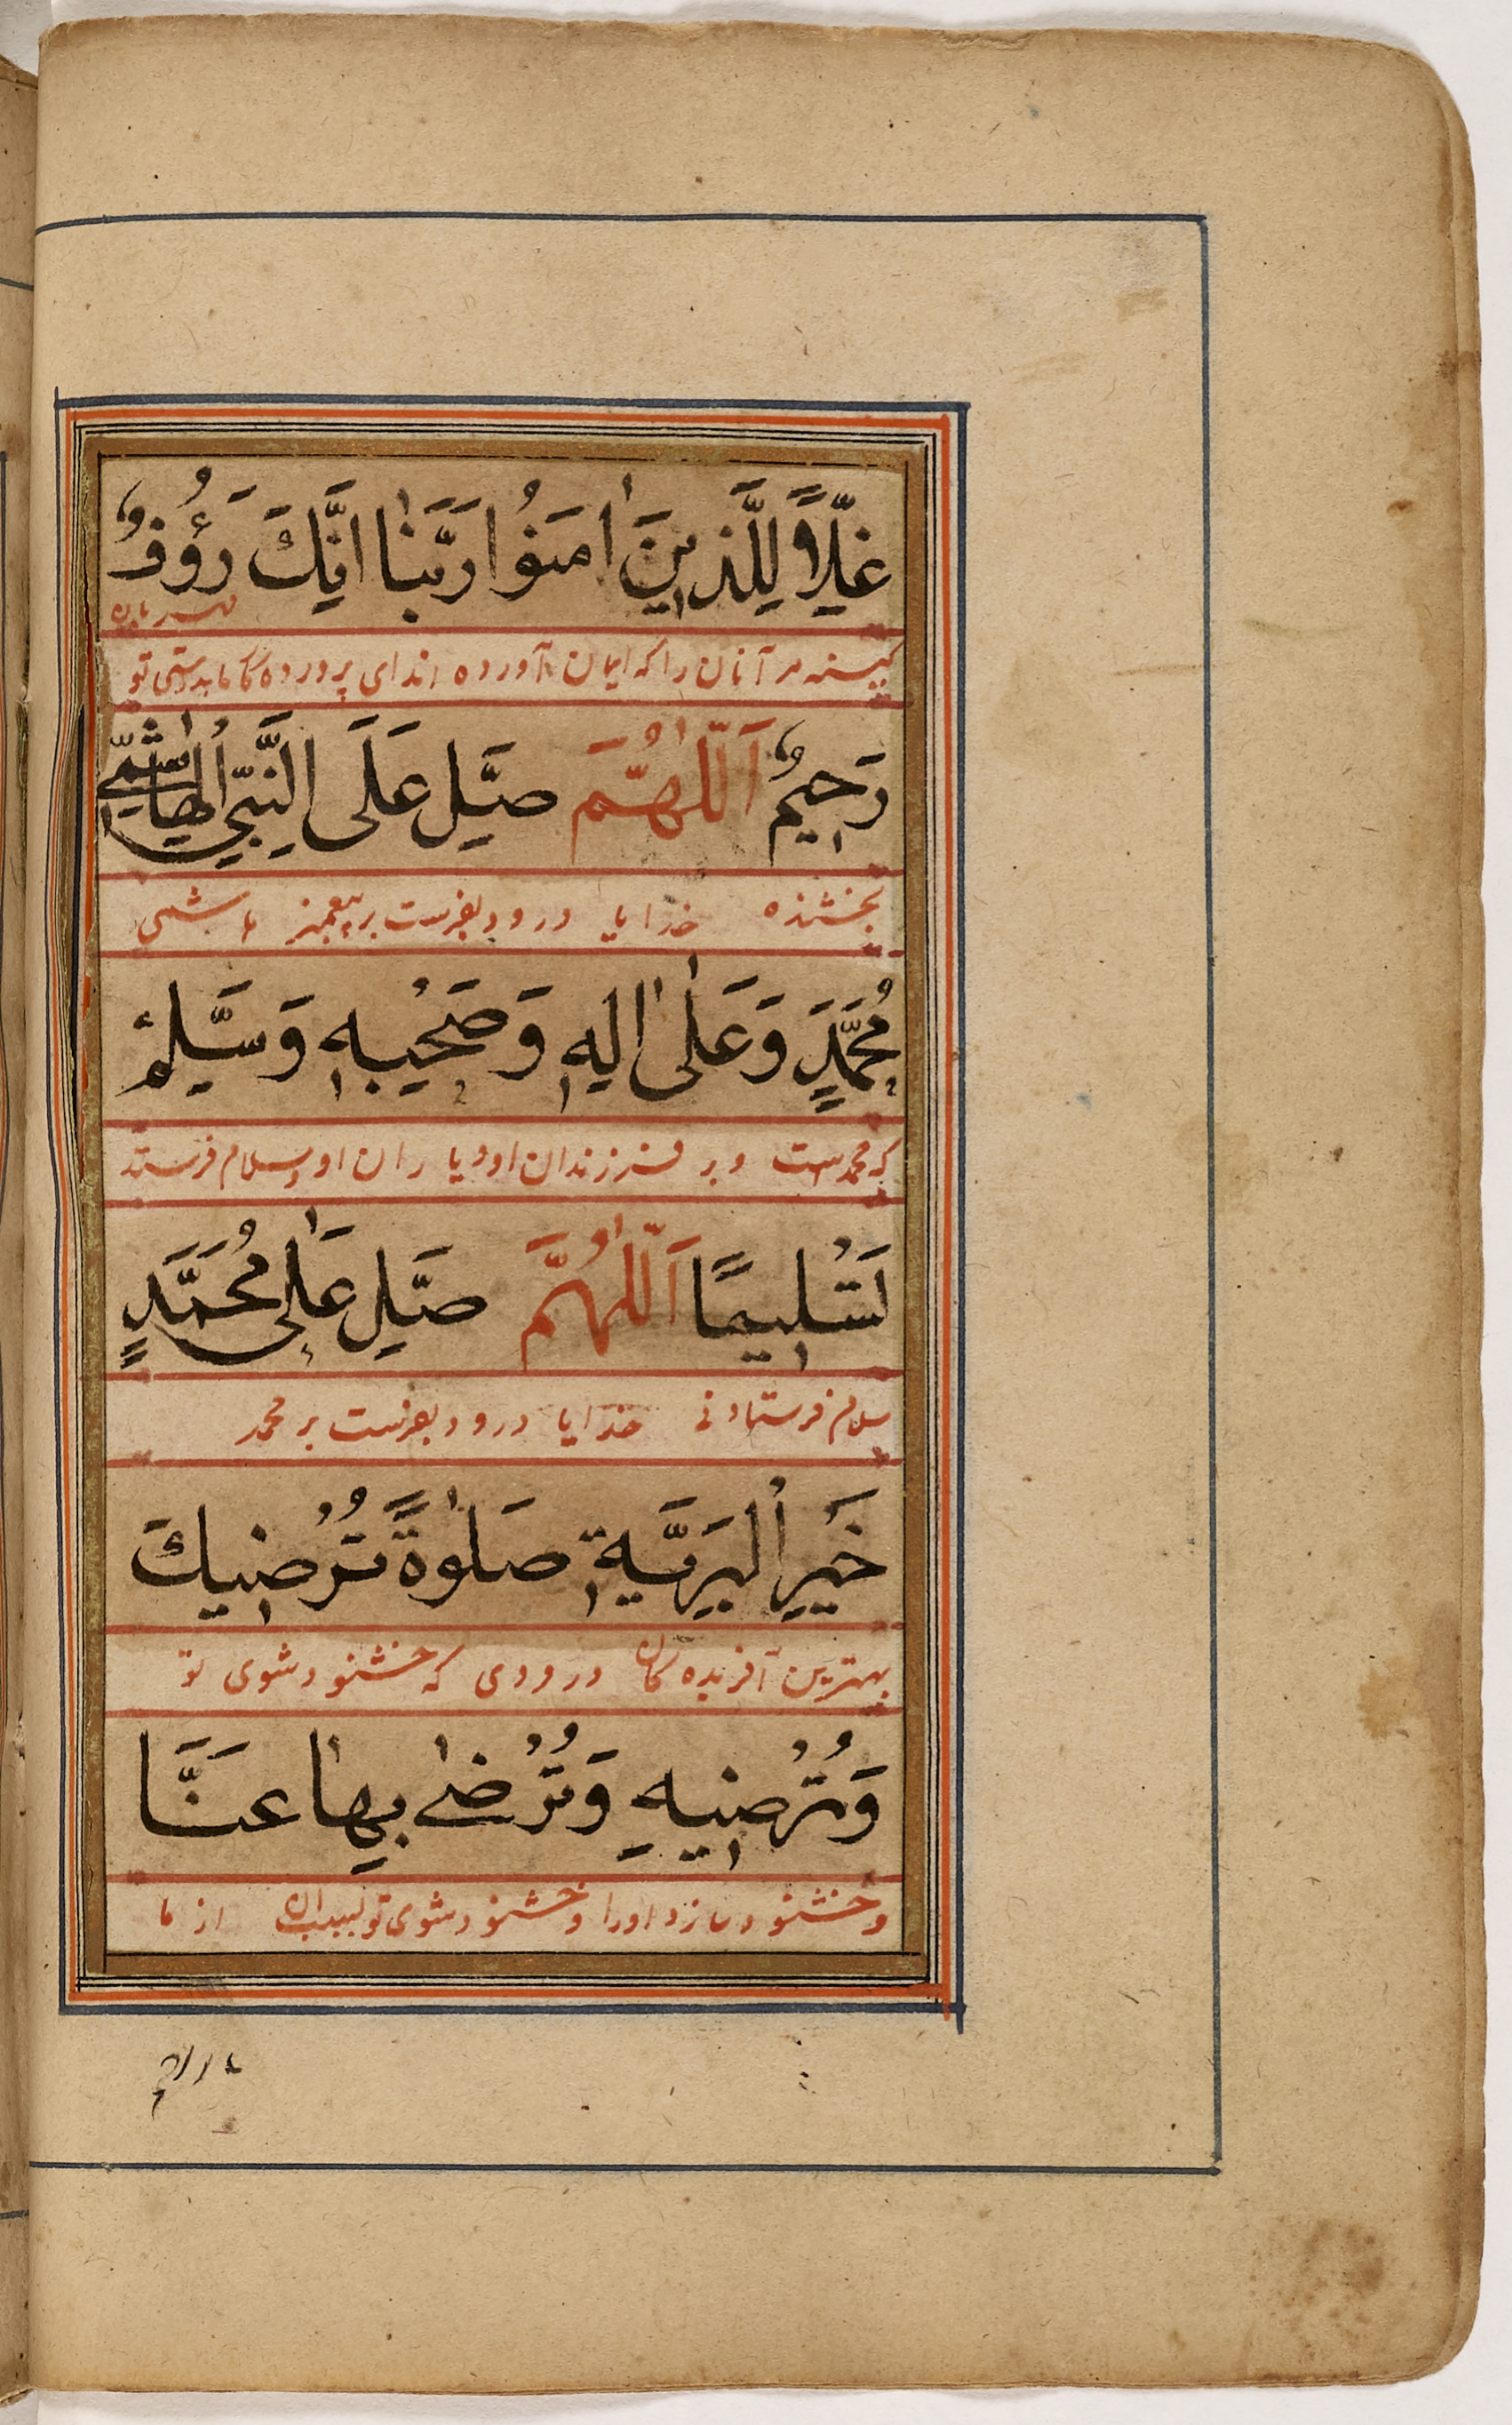 غِلًّا لِلَّذِينَ اٰمَنُوا رَبَّنٰا اِنَّكَ رَؤُفٌ
مهربان
كینه مر آنان را كه ایمان آورده اند ای پروردگار ما بدرستی تو
رَحِيمٌ اَللّٰهُمَّ صَلِّ عَلَى النَّبِيِّ الْهٰاشِمِيِّ
بخشنده خدایا درود بفرست بر پیغمبر هاشمی
مُحَمَّدٍ وَعَلٰى اٰلِهٖ وَصَحْبِهٖ وَسَلِّمْ
كه محمدست و بر فرزندان او و یاران او و سلام فرست
تَسْلِيمًا اَللّٰهُمَّ صَلِّ عَلٰى مُحَمَّدٍ
سلام فرستادنی خدایا درود بفرست بر محمد
خَيْرِ الْبَرِيَّةِ صَلٰوةً تُرْضِيكَ
بهترین آفریده كان درودی كه خشنود شوی تو
وَتُرْضِيهِ وَتَرْضٰى بِهٰا عَنَّا
و خشنود سازد اورا و خشنود شوی تو بسبب ان از ما